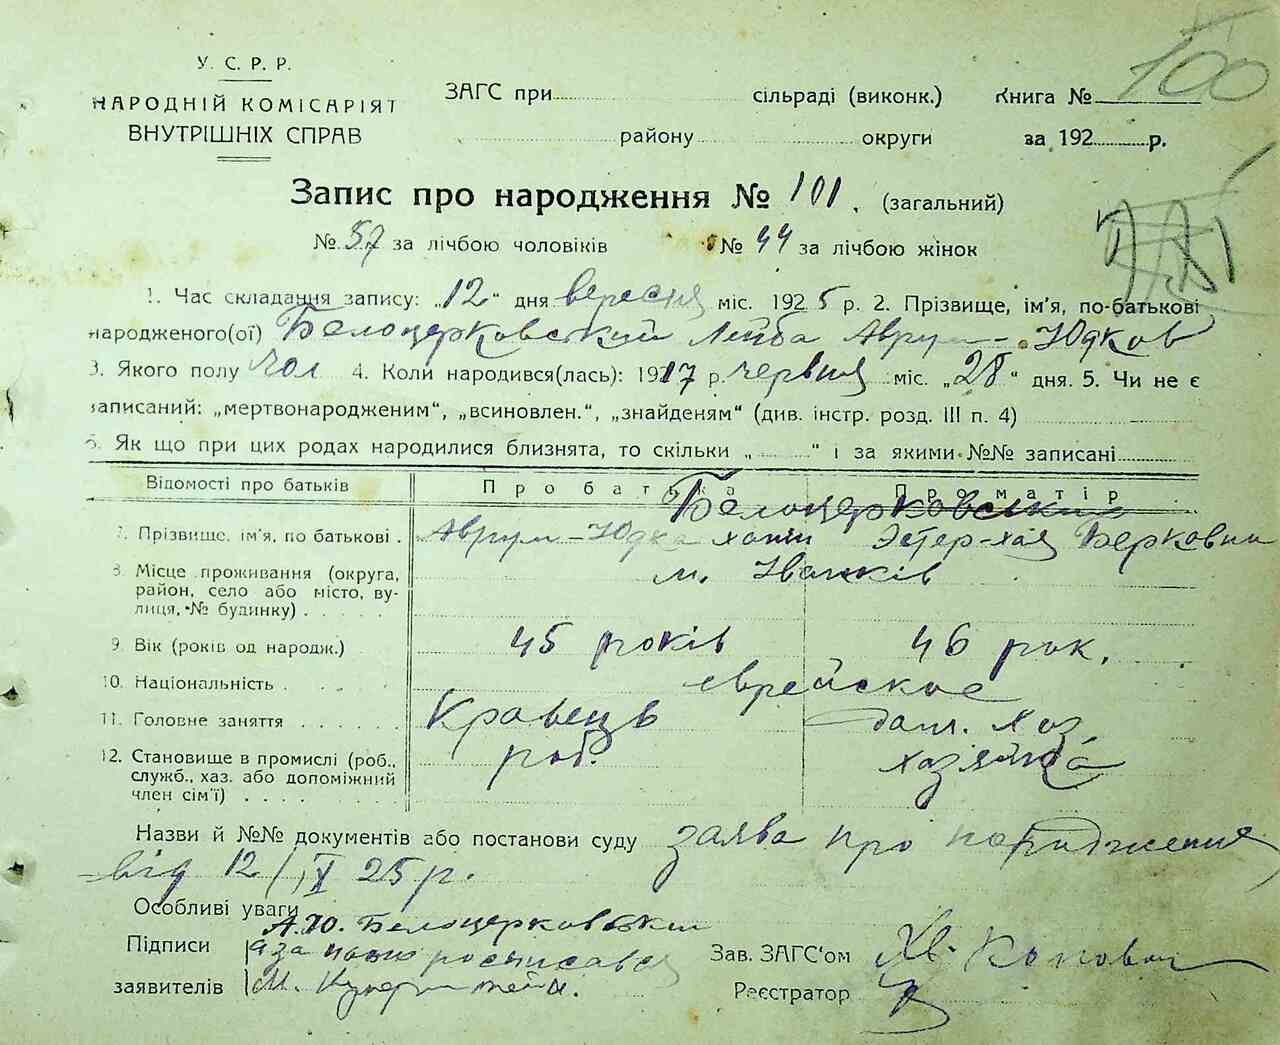 100
У. С. Р. Р.
НАРОДНІЙ КОМІСАРІЯТ
ВНУТРІШНІХ СПРАВ
ЗАГС при сільраді (виконк.) Книга №
району округи за 192 р.
Запис про народження № 101. (загальний)
№ 57 за лічбою чоловіків № 44 за лічбою жінок
1. Час складання запису: „12“ дня вересня міс. 1925 р. 2. Прізвище, ім'я, по-батькові
народженого(ої) Белоцерковський Лейба Аврум-Юдков
3. Якого полу чол 4. Коли народився(лась): 1917 р. червня міс. „28“ дня. 5. Чи не є
записаний: „мертвонародженим“, „всиновлен.“, „знайденям“ (див. інстр. розд. III п. 4)
6. Як що при цих родах народилися близнята, то скільки „ “ і за якими №№ записані
Відомості про батьків Про батька Про матір
Белоцерковські
7. Прізвище, ім'я, по батькові . Аврум-Юдка Эстер-хая Берковна
8. Місце проживання (округа,
район, село або місто, ву-
лиця, № будинку) . . . . . м. Іванків
9. Вік (років од народж.) 45 років 46 рок.
10. Національність . . . . еврейское
11. Головне заняття . . . . . . Кравець
12. Становище в промислі (роб.,
служб., хаз. або допоміжний
член сім'ї) . . . . . . . роб. хазяйка
Назви й №№ документів або постанови суду заява про народження
від 12/IX 25 р.
Особливі уваги
А.Ю. Белоцерковский
Підписи а за росписався
заявителів М.
Зав. ЗАГС'ом
Реєстратор